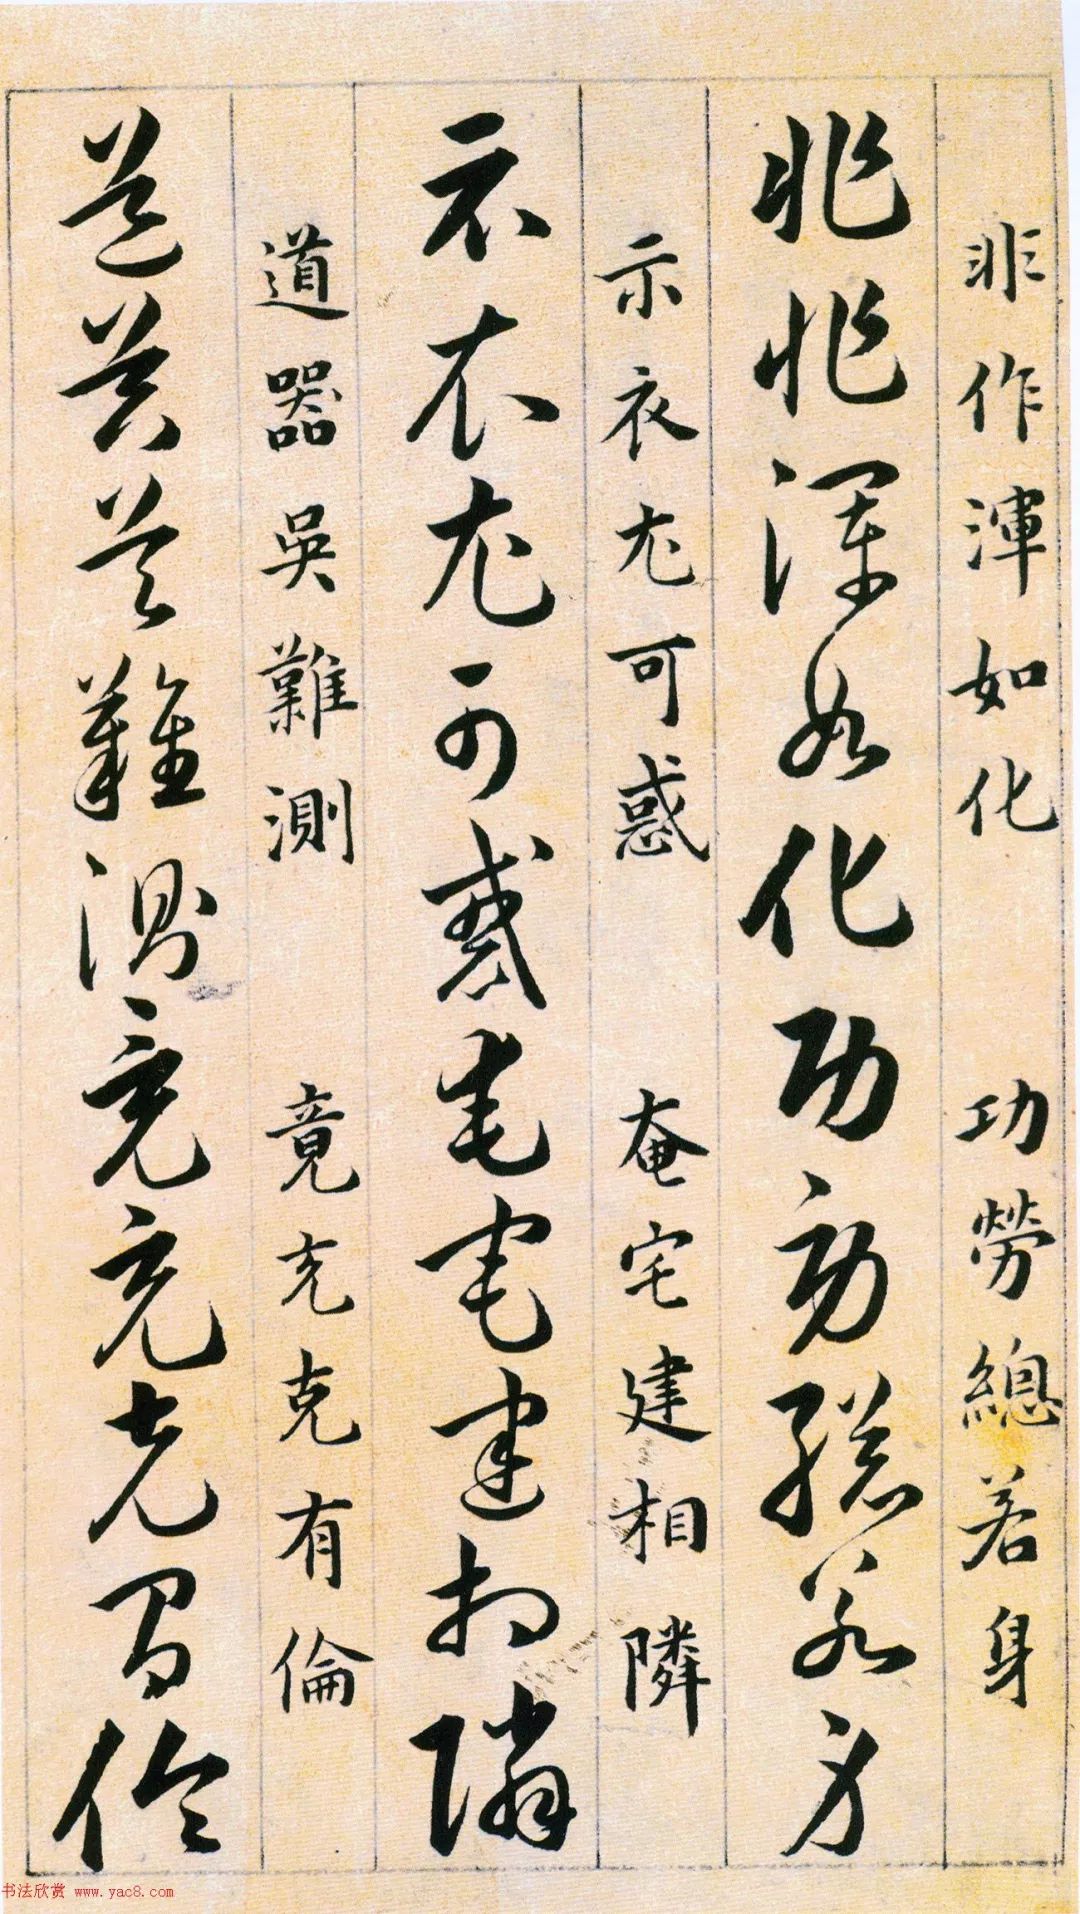 非作渾如化 功勞總若身
非作渾如化功勞總若身
示衣尤可惑 奄宅建相隣
示衣尤可惑奄宅建相隣
道器吳難測 竟充克有倫
道器吳難測竟充克有倫
书法欣赏 www.yac8.com